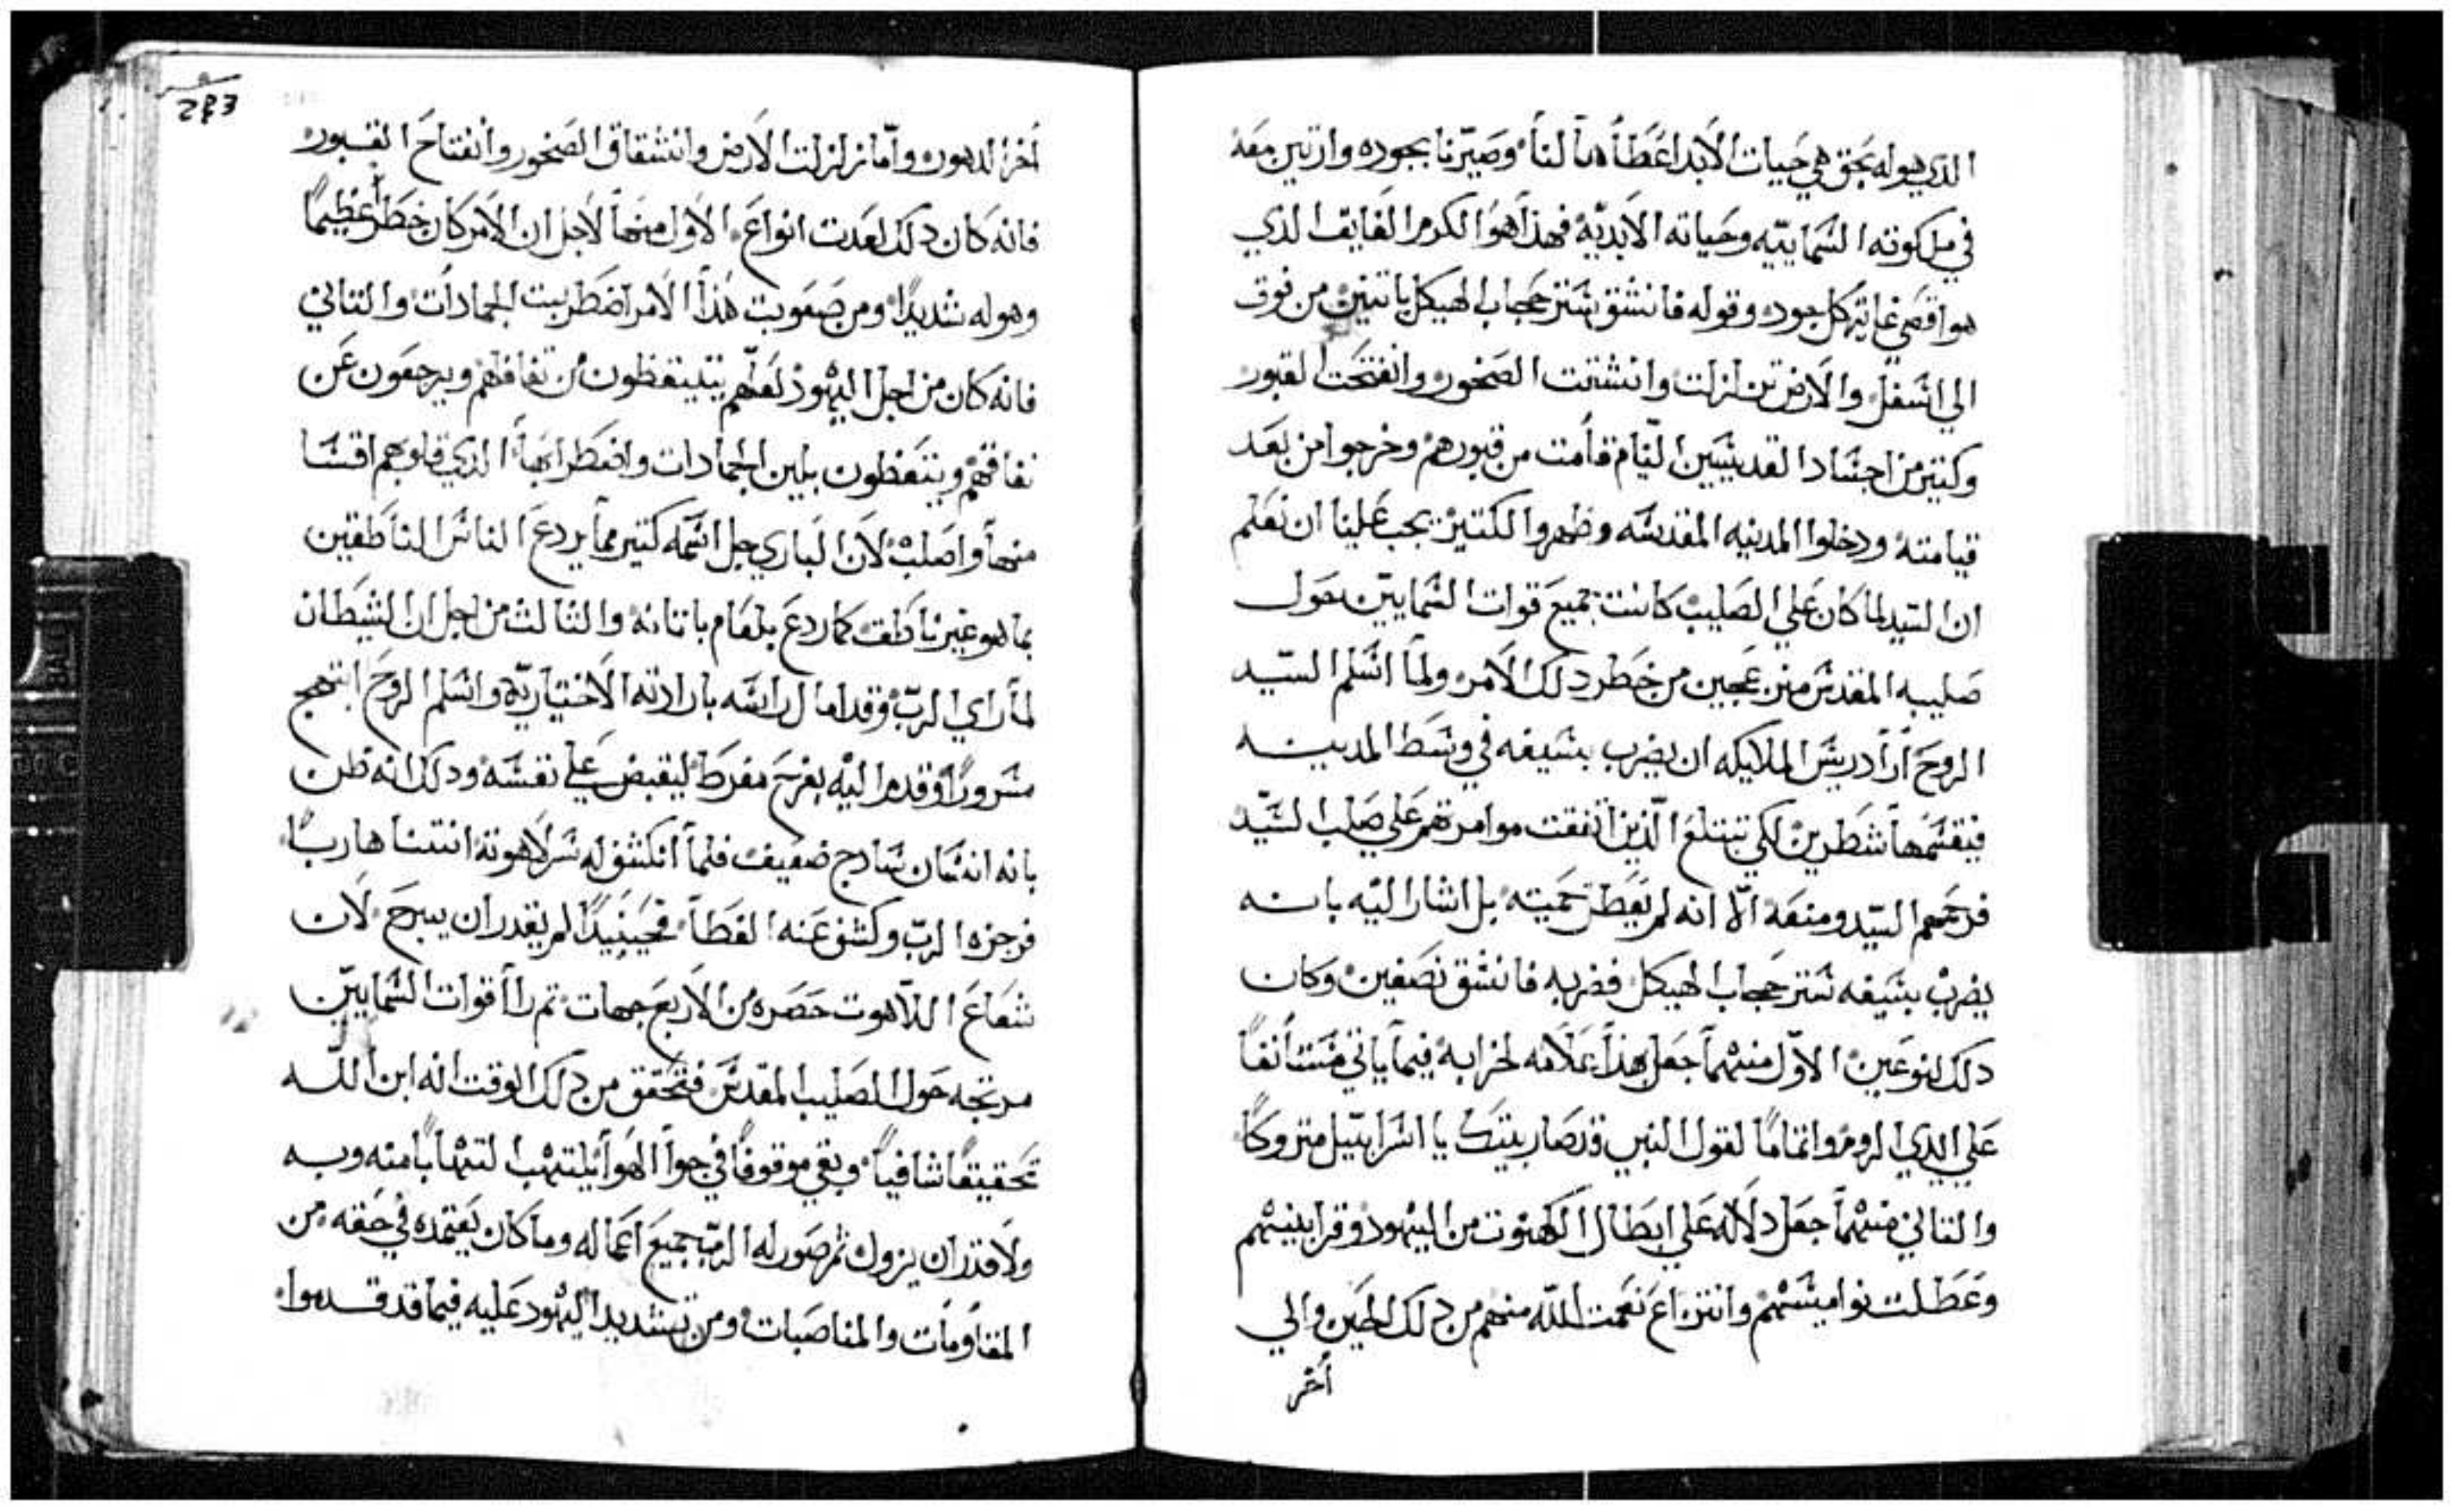 الذي هو له بحق هي حيات الابد اعطاها لنا وصيرنا بجوده وارتين معه
في ملكوته السماييه وحياته الابديه فهذا هو الكرم الفايق الذي
هو اقصي غاية كل جود وقوله فانشق ستر حجاب الهيكل باتنين من فوق
الي اسفل والارض تزلزلت وانشقت الصخور وانفتحت القبور
وكتير من اجساد القديسين النيام قامت من قبورهم وخرجوا من بعد
قيامته ودخلوا المدينه المقدسه وظهروا لكتيرين يجب علينا ان نعلم
ان السيد لما كان علي الصليب كانت جميع قوات السماييين حول
صليبه المقدس متعجبين من خطر دلك الامر ولما اسلم السيد
الروح اراد ريس الملايكه ان يضرب بسيفه في وسط المدينه
فيقسمها شطرين لكي تبتلع الذين اتفقت موامرتهم علي صلب السيد
فرحمهم السيد ومنعه الا انه لم يعطل حميته بل اشار اليه بانه
يضرب بسيفه ستر حجاب الهيكل فضربه فانشق نصفين وكان
دلك لنوعين الاول منهما جعل هذا علامه لخرابه فيما ياتي مستانفا
علي ايدي الروم واتماما لقول النبي قد صار بيتك يا اسراييل متروكا
والتاني منهما جعل دلاله علي ابطال الكهنوت من اليهود وقرابينهم
وعطلت نواميسهم وانتزاع نعمت الله منهم من دلك الحين والي
اخر
283
اخر الدهور واما زلزلت الارض وانشقاق الصخور وانفتاح القبور
فانه كان دلك لعدت انواع الاول منها لاجل ان الامر كان خطرا عظيما
وهوله شديدا ومن صعوبت هذا الامر اضطربت الجمادات والتاني
فانه كان من اجل اليهود لعلهم يتيقظون من نفاقهم ويرجعون عن
نفاقهم ويتعظون بلين الجمادات واضطرابها الذي قلوبهم اقسا
منها واصلب لان الباري جل اسمه كتير مما يردع الناس الناطقين
بما هو غير ناطق كما ردع بلعام باتانه والتالت من اجل ان الشيطان
لما راي الرب وقد امال راسه بارادته الاختياريه واسلم الروح ابتهج
مسرورا وقدم اليه بفرح مفرط ليقبض علي نفسه ودلك انه ظن
بانه انسان سادج ضعيف فلما انكشف له سر لاهوته انتنا هاربا
فزجره الرب وكشف عنه الغطا فحينيدا لم يقدر ان يبرح لان
شعاع اللاهوت حصره من الاربع جهات تم راا قوات السماييين
مرتجه حول الصليب المقدس فتحقق من دلك الوقت انه ابن الله
تحقيقا شافيا وبقي موقوفا في جوا الهوا يلتهب التهابا منه وبه
ولا قدر ان يزول تم صور له الرب جميع اعماله وما كان يعتمده في حقه من
المقاومات والمناصبات ومن تشديد اليهود عليه فيما قد قدموا